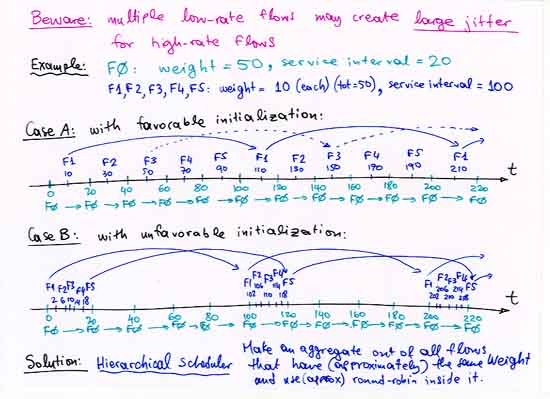 Beware: multiple low-rate flows may create large jitter
for high-rate flows
Example: FØ: weight = 50, service interval = 20
F1,F2,F3,F4,F5: weight = 10 (each) (tot=50), service interval = 100
Case A: with favorable initialization:
F1 F2 F3 F4 F5 F1 F2 F3 F4 F5 F1
10 30 50 70 90 110 130 150 170 190 210 t
0 20 40 60 80 100 120 140 160 180 200 220
FØ → FØ → FØ → FØ → FØ → FØ → FØ → FØ → FØ → FØ → FØ → FØ
Case B: with unfavorable initialization:
F1 F2 F3 F4 F5 F1 F2 F3 F4 F5 F1 F2 F3 F4 F5
2 6 10 14 18 102 106 110 114 118 202 206 210 214 218 t
0 20 40 60 80 100 120 140 160 180 200 220
FØ → FØ → FØ → FØ → FØ → FØ → FØ → FØ → FØ → FØ → FØ → FØ
Solution: Hierarchical scheduler Make an aggregate out of all flows
that have (approximately) the same weight
and use (approx) round-robin inside it.